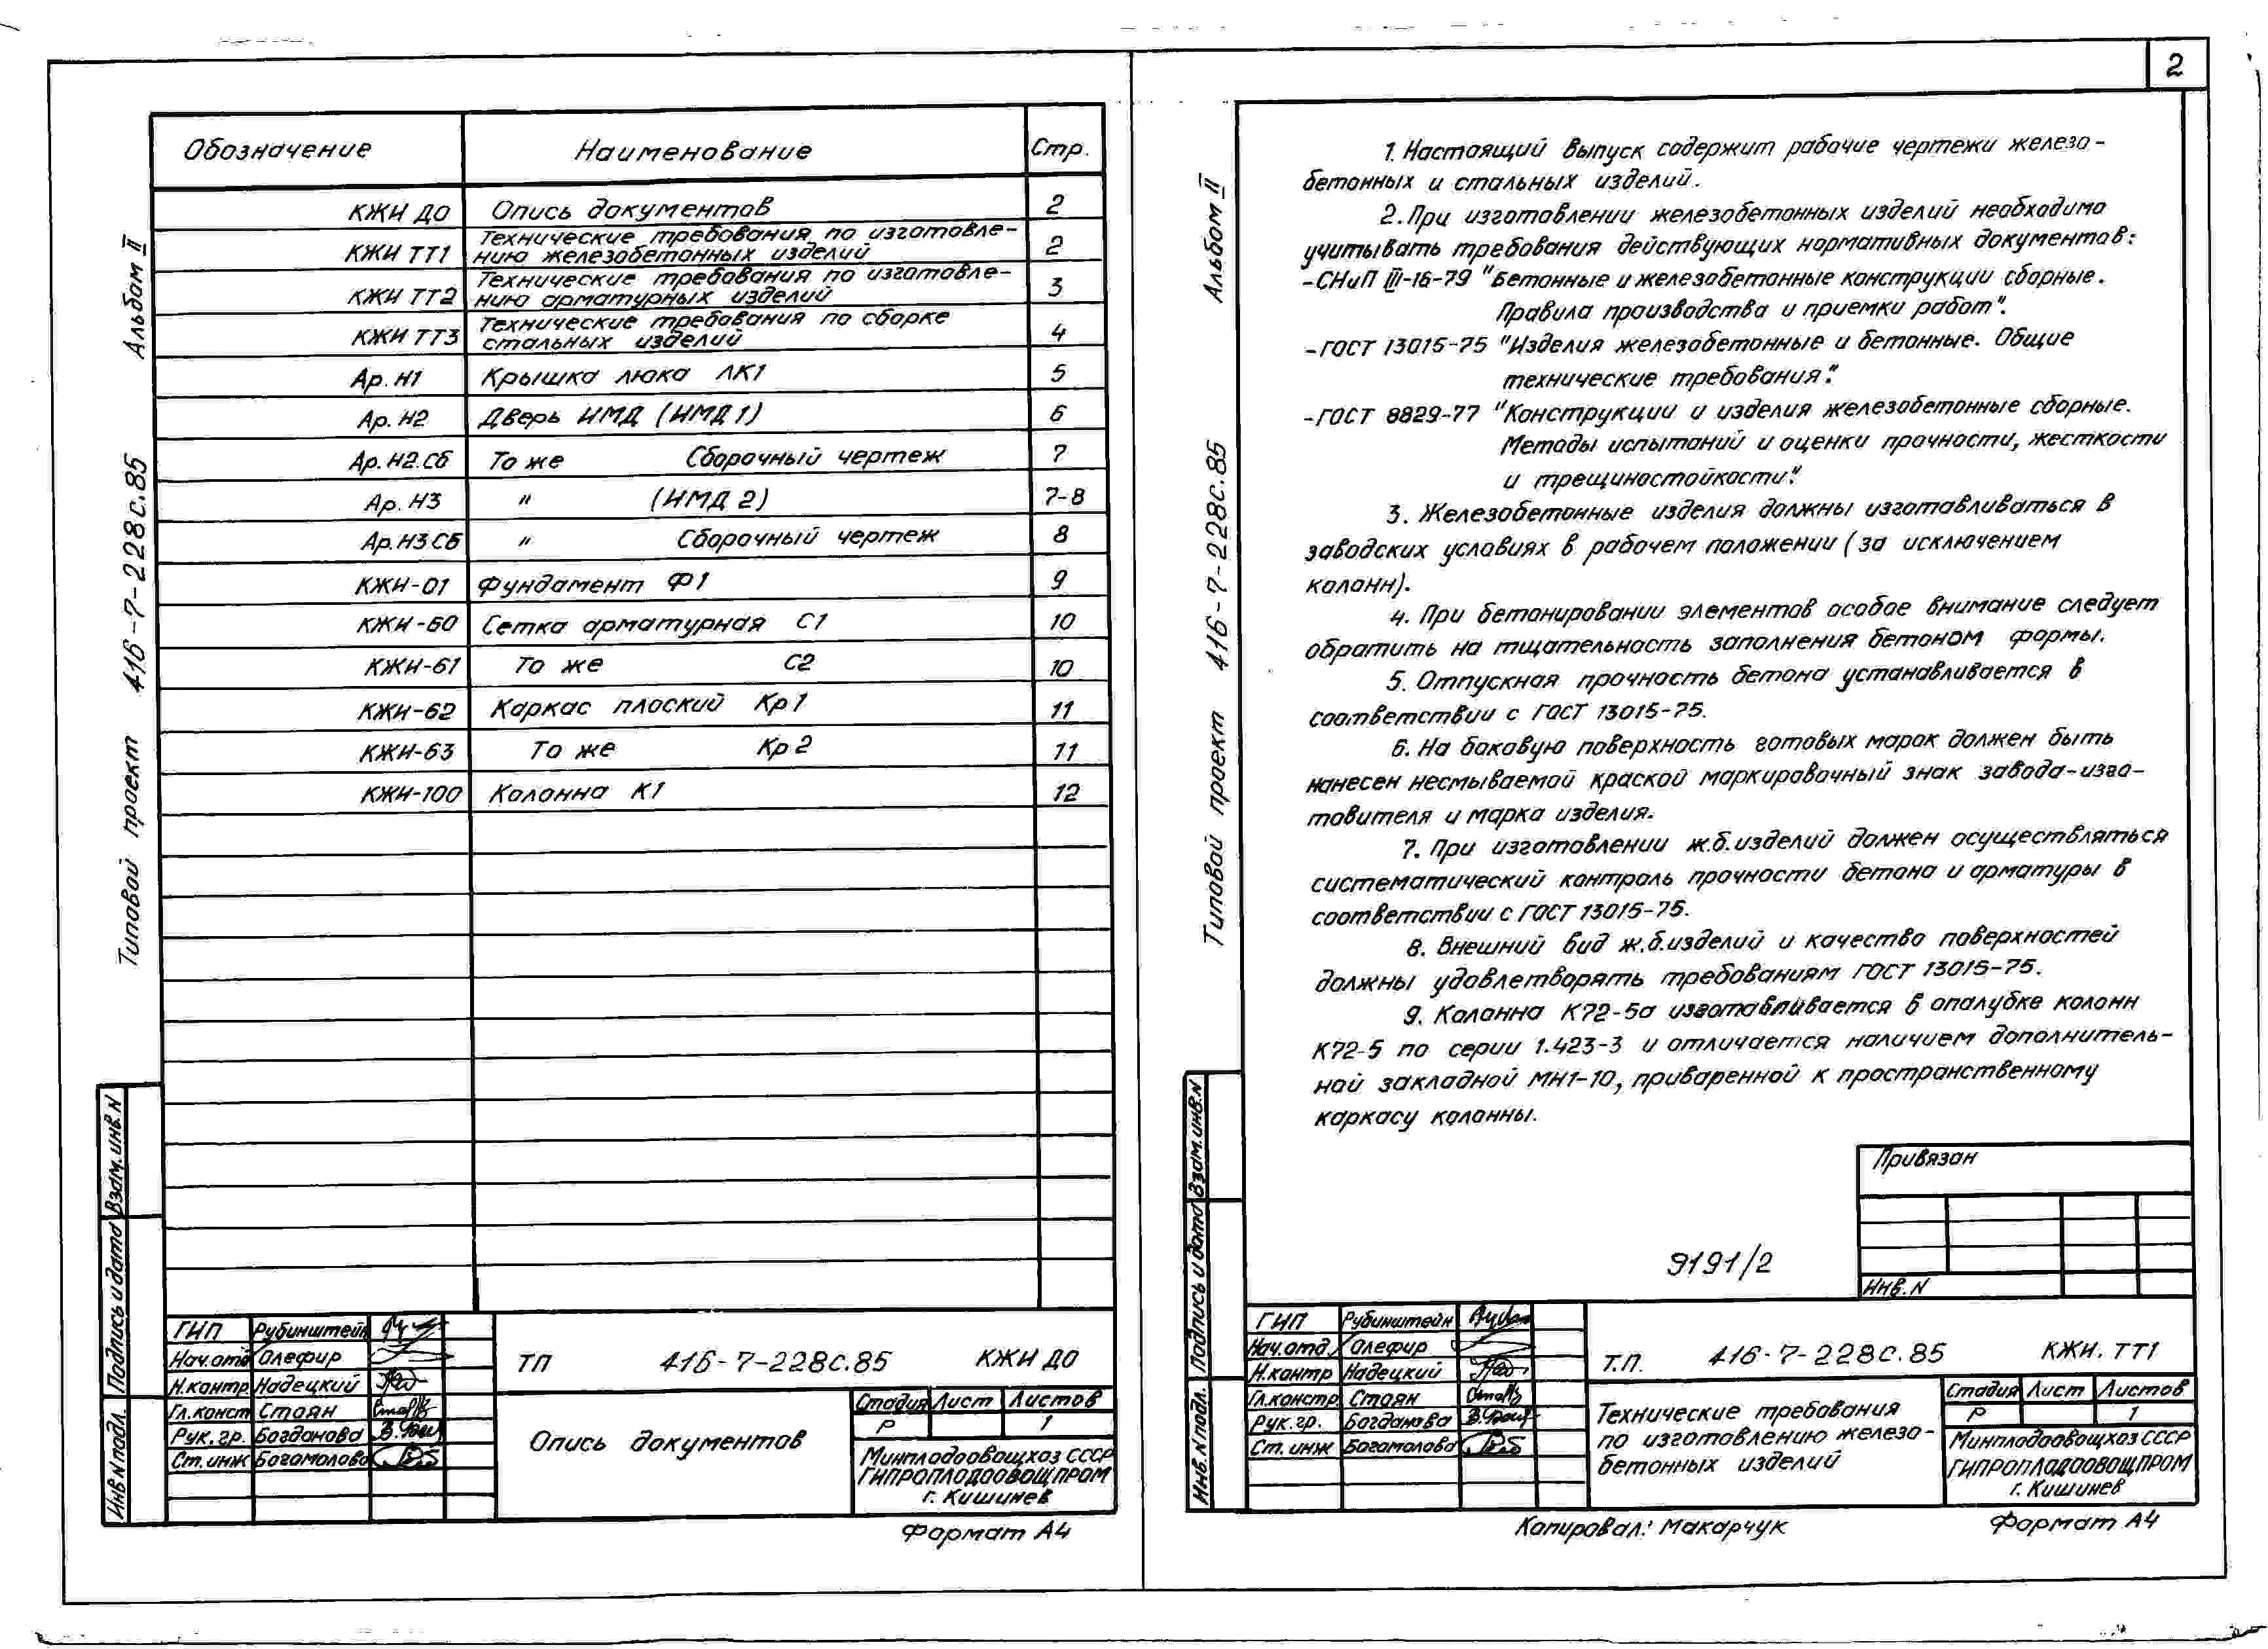 2
Обозначение Наименование Стр.
КЖИ ДО Опись документов 2
КЖИ ТТ1 Технические требования по изготовле-
нию железобетонных изделий 2
КЖИ ТТ2 Технические требования по изготовле-
нию арматурных изделий 3
КЖИ ТТ3 Технические требования по сборке
стальных изделий 4
Ар. И1 Крышка люка ЛК1 5
Ар. И2 Дверь ИМД (ИМД 1) 6
Ар. И2.Сб То же Сборочный чертеж 7
Ар. И3 " (ИМД 2) 7-8
Ар. И3 Сб " Сборочный чертеж 8
КЖИ-01 Фундамент Ф1 9
КЖИ-60 Сетка арматурная С1 10
КЖИ-61 То же С2 10
КЖИ-62 Каркас плоский Кр1 11
КЖИ-63 То же Кр2 11
КЖИ-100 Колонна К1 12
Типовой проект 416-7-228с.85 Альбом II
Инв.N подл. Подпись и дата Взам.инв.N
ГИП Рубинштейн
Нач.отд Олефир
Н.контр Надецкий
Гл.конст Стоян
Рук. гр. Богданова
Ст.инж Богомолова
ТП 416-7-228с.85 КЖИ ДО
Опись документов
Стадия Лист Листов
Р 1
Минплодоовощхоз СССР
ГИПРОПЛОДООВОЩПРОМ
г. Кишинев
Формат А4
1. Настоящий выпуск содержит рабочие чертежи железо-
бетонных и стальных изделий.
2. При изготовлении железобетонных изделий необходимо
учитывать требования действующих нормативных документов:
-СНиП III-16-79 "Бетонные и железобетонные конструкции сборные.
Правила производства и приемки работ".
-ГОСТ 13015-75 "Изделия железобетонные и бетонные. Общие
технические требования".
-ГОСТ 8829-77 "Конструкции и изделия железобетонные сборные.
Методы испытаний и оценки прочности, жесткости
и трещиностойкости".
3. Железобетонные изделия должны изготавливаться в
заводских условиях в рабочем положении (за исключением
колонн).
4. При бетонировании элементов особое внимание следует
обратить на тщательность заполнения бетоном формы.
5. Отпускная прочность бетона устанавливается в
соответствии с ГОСТ 13015-75.
6. На боковую поверхность готовых марок должен быть
нанесен несмываемой краской маркировочный знак завода-изго-
товителя и марка изделия.
7. При изготовлении ж.б.изделий должен осуществляться
систематический контроль прочности бетона и арматуры в
соответствии с ГОСТ 13015-75.
8. Внешний вид ж.б.изделий и качество поверхностей
должны удовлетворять требованиям ГОСТ 13015-75.
9. Колонна К72-5а изготавливается в опалубке колонн
К72-5 по серии 1.423-3 и отличается наличием дополнитель-
ной закладной МН1-10, приваренной к пространственному
каркасу колонны.
Типовой проект 416-7-228с.85 Альбом II
Инв.N подл. Подпись и дата Взам.инв.N
Привязан
Инв. N
9191/2
ГИП Рубинштейн
Нач.отд Олефир
Н.контр Надецкий
Гл.констр Стоян
Рук.гр. Богданова
Ст. инж Богомолова
Т.П. 416-7-228с.85 КЖИ. ТТ1
Технические требования
по изготовлению железо-
бетонных изделий
Стадия Лист Листов
Р 1
Минплодоовощхоз СССР
ГИПРОПЛОДООВОЩПРОМ
г. Кишинев
Копировал: Макарчук Формат А4